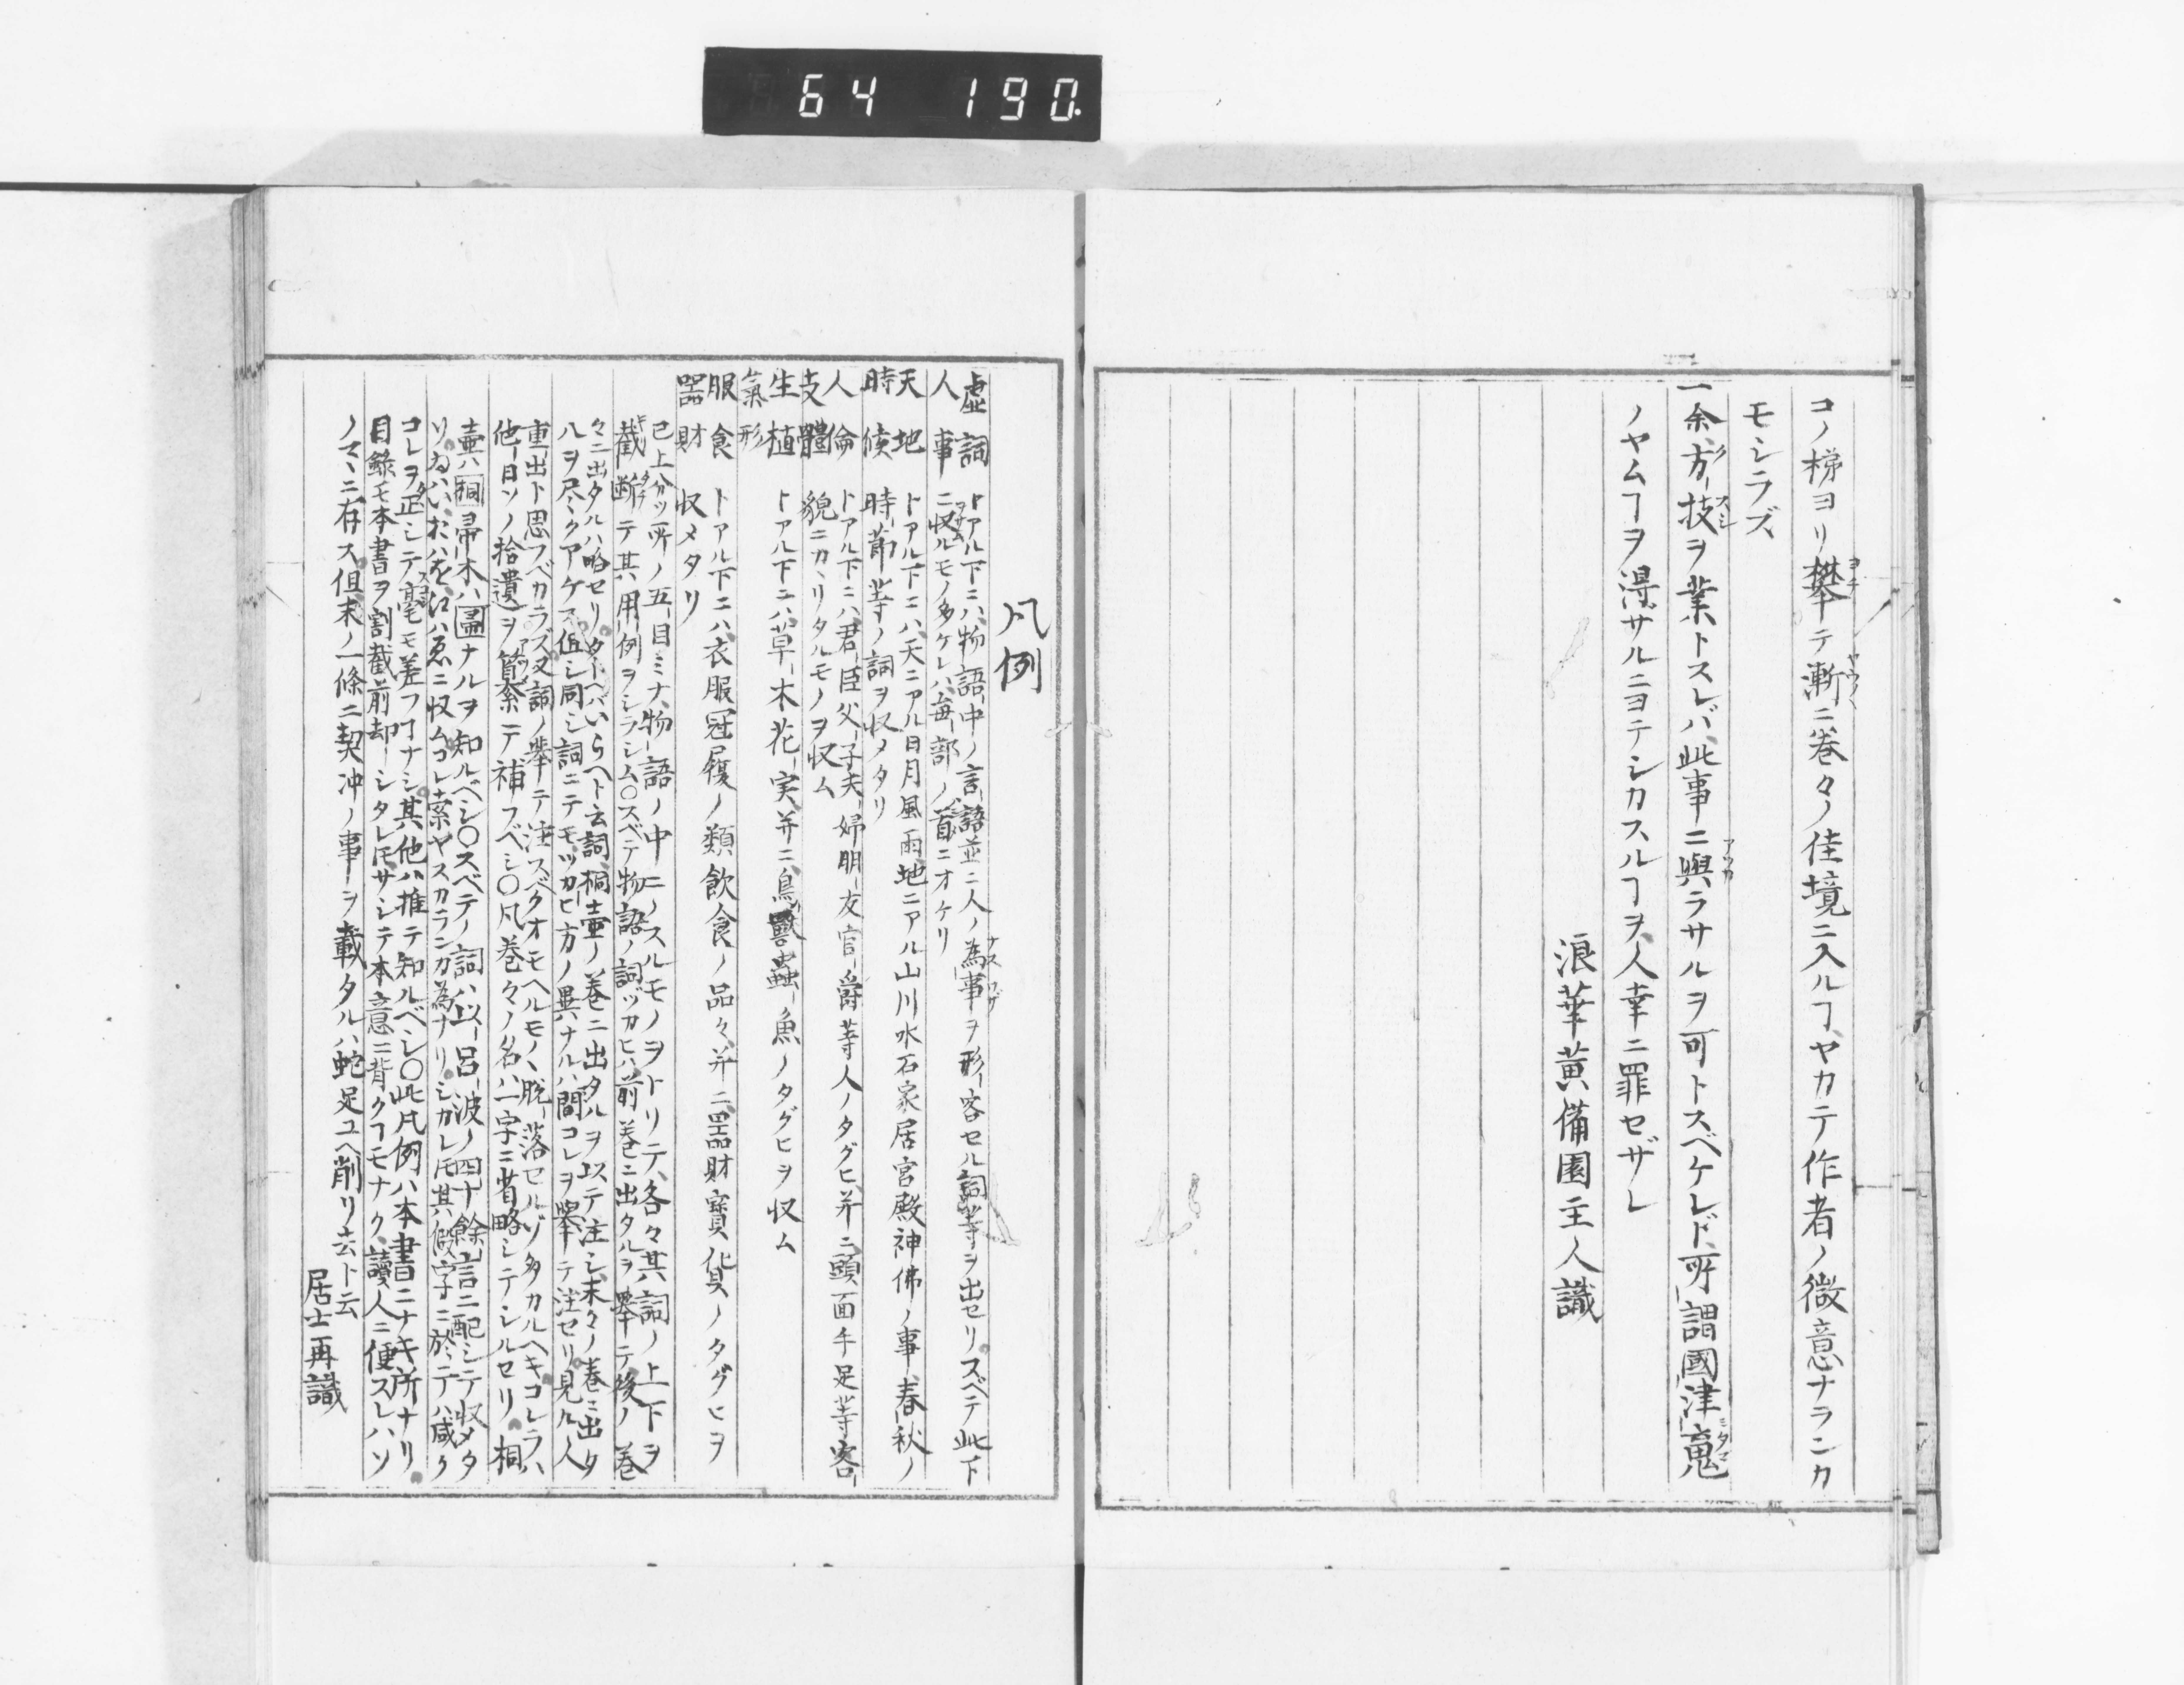 64 190.
コノ梯ヨリ攀テ漸ニ巻々ノ佳境ニ入ルヿヤカテ作者ノ微意ナランカ
モシラズ
一余方技ヲ業トスレバ此事ニ與ラサルヲ可トスベケレド所謂國津寃
ノヤムヿヲ得ザルニヨテシカスルヿヲ人幸ニ罪セザレ
浪華黄備園主人識
凡例
虚詞 トアル下ニハ物語中ノ言語並ニ人ノ為事ヲ形容セル詞等ヲ出セリスベテ此下
人事 ニ収ルモノ多ケレハ毎部ノ首ニオケリ
天地 トアル下ニハ天ニアル日月風雨地ニアル山川水石家居宮殿神佛ノ事春秋ノ
時候 時節等ノ詞ヲ収メタリ
人倫 トアル下ニハ君臣父子夫婦朋友官爵等人ノタグヒ并ニ頭面手足等容
支體 貌ニカヽリタルモノヲ収ム
生植 トアル下ニハ草木花実并ニ鳥獸蟲魚ノタグヒヲ収ム
氣形
服食 トアル下ニハ衣服冠履ノ類飲食ノ品々并ニ器財寳貨ノタグヒヲ
器財 収メタリ
已上分ツ所ノ五目ミナ物語ノ中ニノスルモノヲトリテ各々其詞ノ上下ヲ
截断テ其用例ヲシラシム○スベテ物語ノ詞ヅカヒハ前巻ニ出タルヲ舉テ後ノ巻
々ニ出タルハ略セリタトヘバいらへト云詞桐壷ノ巻ニ出タルヲ以テ注シ末々ノ巻ニ出タ
ハヲ尽クアケス但シ同シ詞ニテモツカヒ方ノ異ナルハ間コレヲ擧テ注セリ見ル人
重出ト思フベカラズ又詞ノ擧テ注スベクオモヘルモノヽ脱落セルゾ多カルヘキコレラハ
他日ソノ拾遺ヲ纂テ補フベシ○凡巻々ノ名ハ一字ニ省略シテシルセリ桐
壷ハ桐帚木ハ帚ナルヲ知ルベシ○スベテノ詞ハ以呂波ノ四十餘言ニ配シテ収メタ
リゐハいおハを江ハゑニ収ムコレ索ヤスカランカ為ナリシカレ𪜈其假字ニ於テハ咸ク
コレヲ正シテ毫モ差フヿナシ其他ハ推テ知ルベシ○此凡例ハ本書ニナキ所ナリ
目錄モ本書ヲ割截前却シタレ𪜈サシテ本意ニ背クヿモナク讀人ニ便スレハソ
ノマヽニ存ス但末ノ一條ニ契冲ノ事ヲ載タルハ蛇足ユヘ削リ去ト云
居士再識